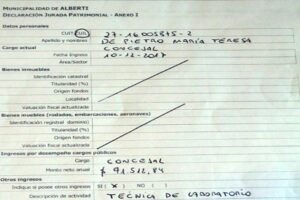 MUNICIPALIDAD DE ALBERTI
DECLARACIÓN JURADA PATRIMONIAL - ANEXO I
Datos personales
CUIT/CUIL 27-16005875-2
Apellido y nombres DE PIETRO MARÍA TERESA
Cargo actual CONCEJAL
Fecha Ingreso 10-12-2017
Área/Sector
Bienes inmuebles
Identificación catastral
Titularidad (%)
Origen fondos
Localidad
Valuación fiscal actualizada
Bienes muebles (rodados, embarcaciones, aeronaves)
Identificación registral (dominio)
Titularidad (%)
Origen fondos
Valuación fiscal actualizada
Ingresos por desempeño cargos públicos
Cargo CONCEJAL
Monto neto anual $ 91.512,84
Otros ingresos
Indique si posee otros ingresos SI ( X ) NO ( )
Descripción de actividad TÉCNICA DE LABORATORIO